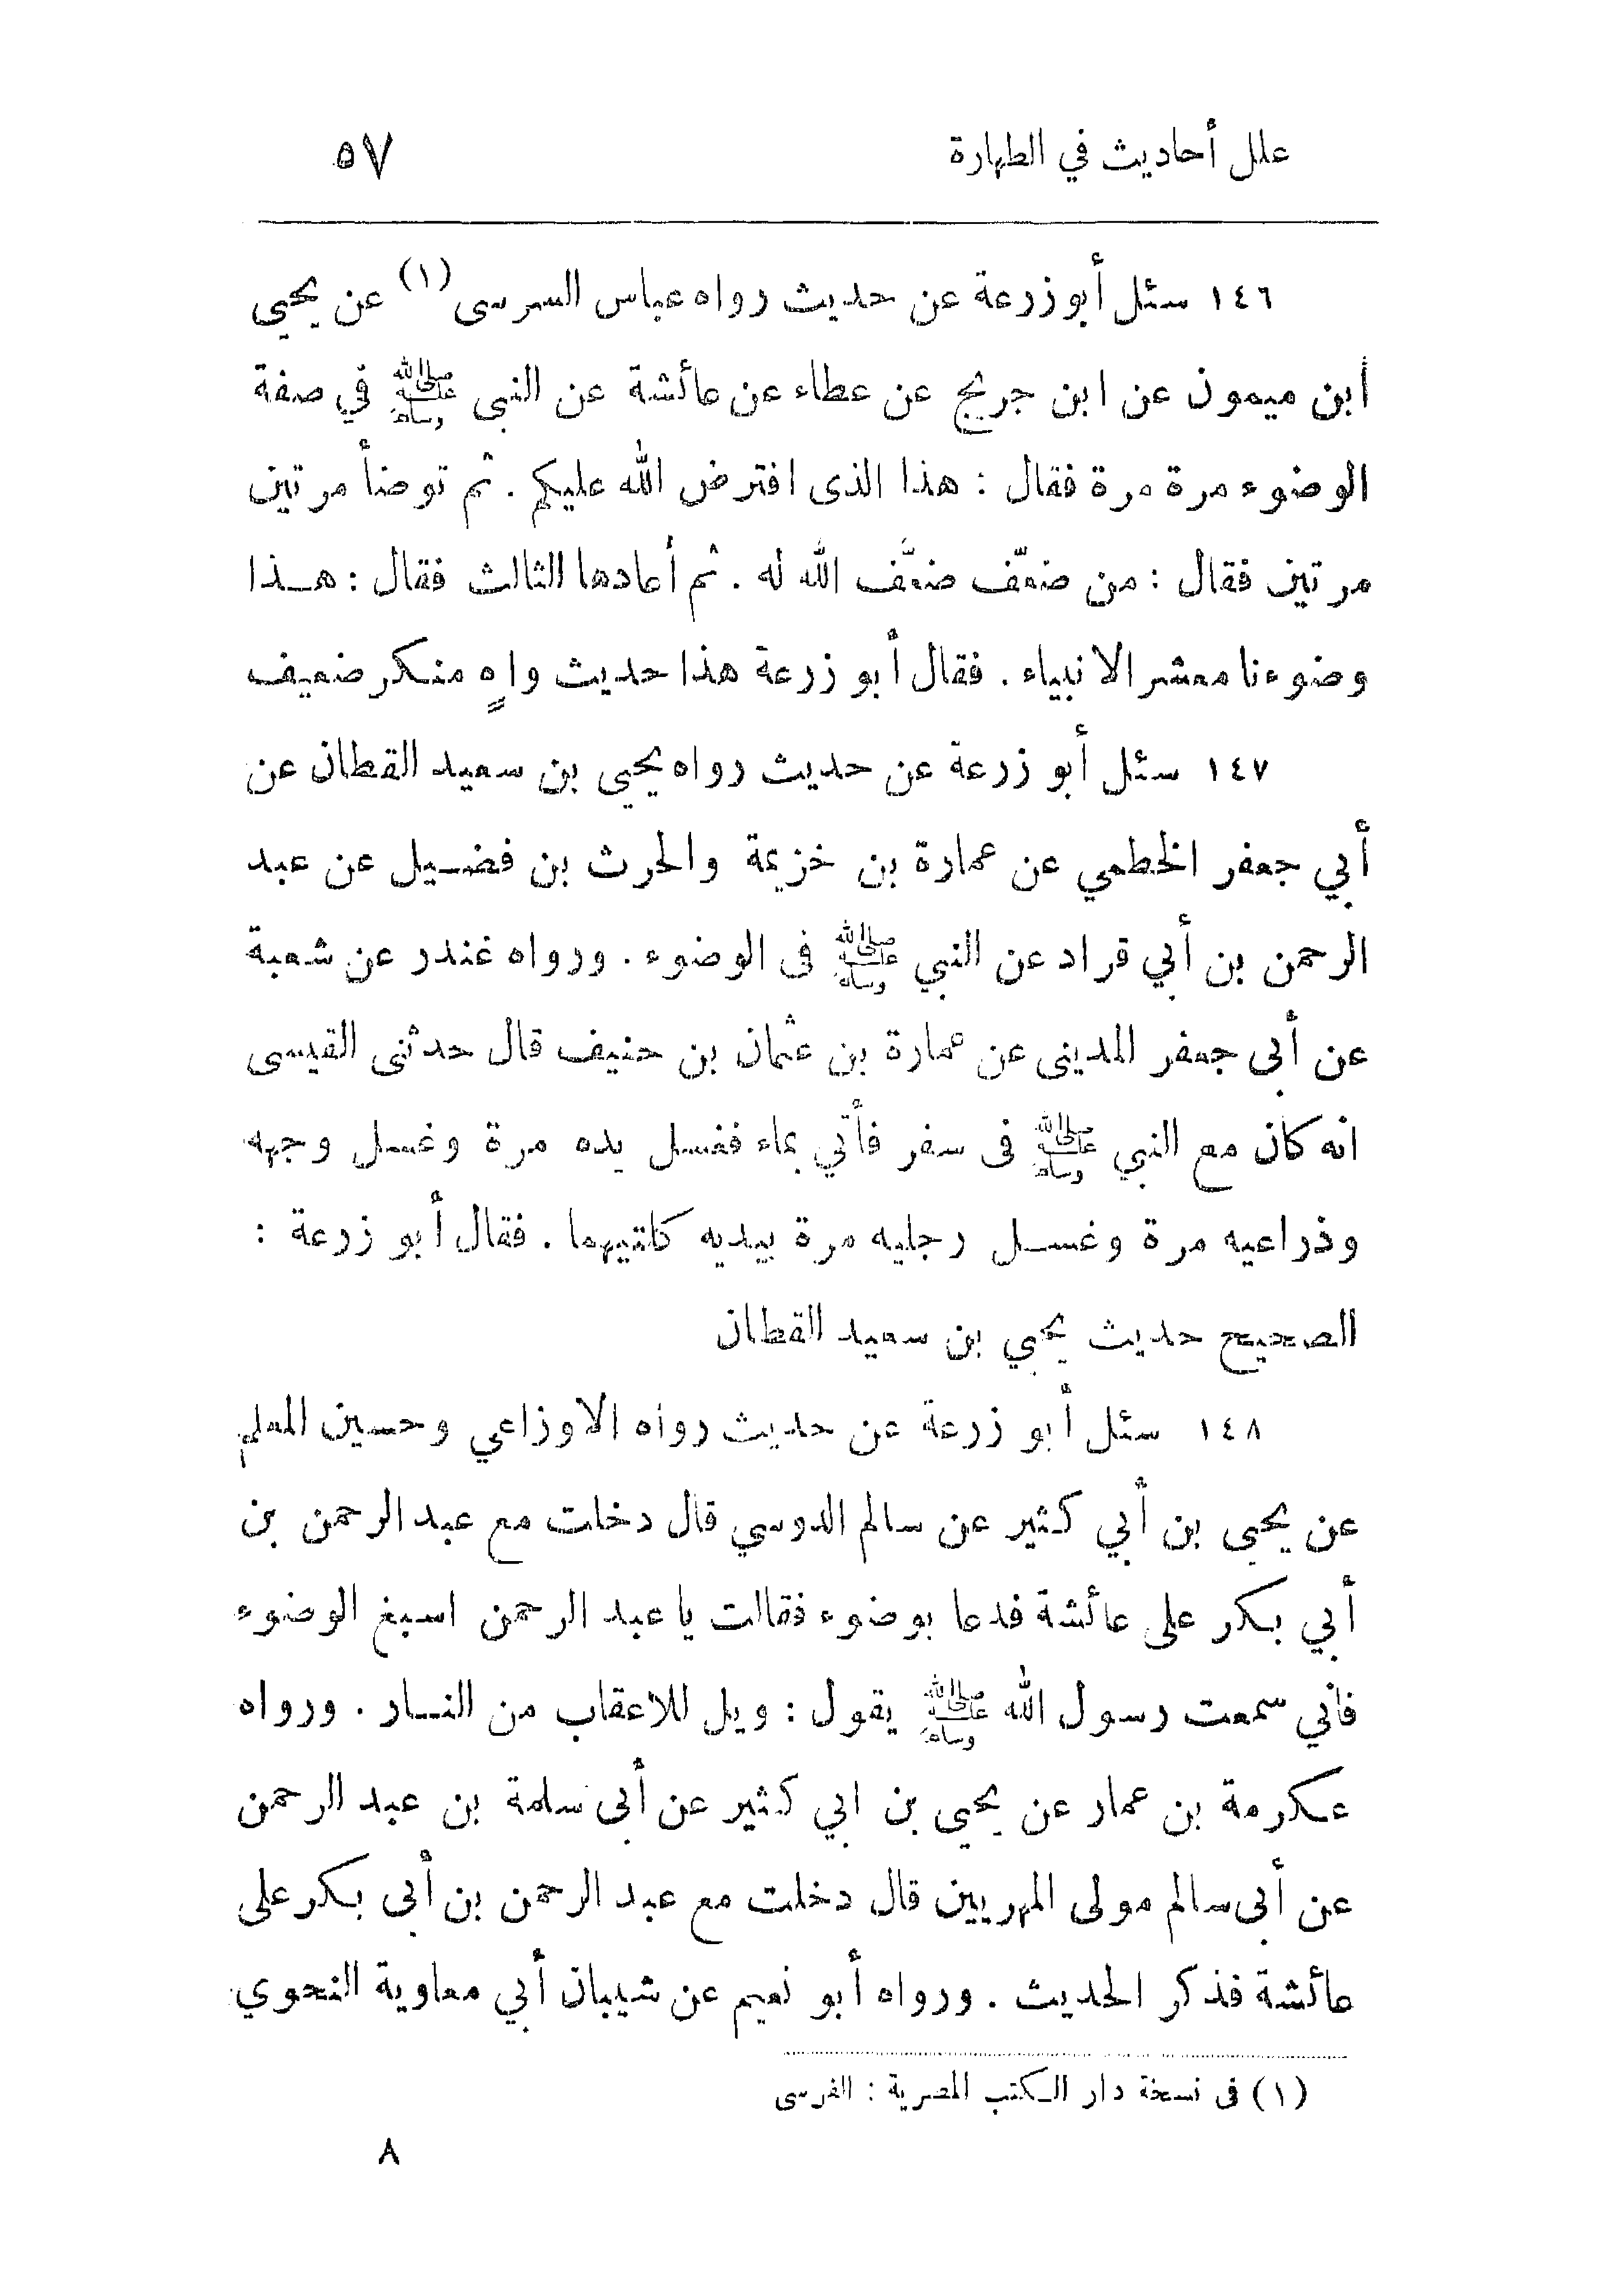 علل أحاديث في الطهارة ٥٧
١٤٦ سئل أبو زرعة عن حديث رواه عباس السرسى (١) عن يحيى
أبن ميمون عن ابن جريج عن عطاء عن عائشة عن النبى ﷺ في صفة
الوضوء مرة مرة فقال : هذا الذى افترض الله عليكم . ثم توضأ مرتين
مرتين فقال : من ضعّف ضعَّف الله له . ثم أعادها الثالث فقال : هـذا
وضوءنا معشر الانبياء . فقال أبو زرعة هذا حديث واهٍ منكر ضعيف
١٤٧ سئل أبو زرعة عن حديث رواه يحيى بن سعيد القطان عن
أبي جعفر الخطمي عن عمارة بن خزيمة والحرث بن فضيل عن عبد
الرحمن بن أبي قراد عن النبي ﷺ فى الوضوء . ورواه غندر عن شعبة
عن أبى جعفر المدينى عن عمارة بن عثمان بن حنيف قال حدثنى القيسى
انه كان مع النبي ﷺ فى سفر فأتي بماء فغسل يده مرة وغسل وجهه
وذراعيه مرة وغسـل رجليه مرة بيديه كلتيهما . فقال أبو زرعة :
الصحيح حديث يحيي بن سعيد القطان
١٤٨ سئل أبو زرعة عن حديث رواه الاوزاعي وحسين المعلم
عن يحيى بن أبي كثير عن سالم الدوسي قال دخلت مع عبد الرحمن بن
أبي بكر على عائشة فدعا بوضوء فقالت يا عبد الرحمن اسبغ الوضوء
فاني سمعت رسول الله ﷺ يقول : ويل للاعقاب من النـار . ورواه
عكرمة بن عمار عن يحيى بن ابي كثير عن أبى سلمة بن عبد الرحمن
عن أبى سالم مولى المهريين قال دخلت مع عبد الرحمن بن أبى بكر على
عائشة فذكر الحديث . ورواه أبو نعيم عن شيبان أبي معاوية النحوي
(١) فى نسخة دار الكتب المصرية : الفرسى
٨